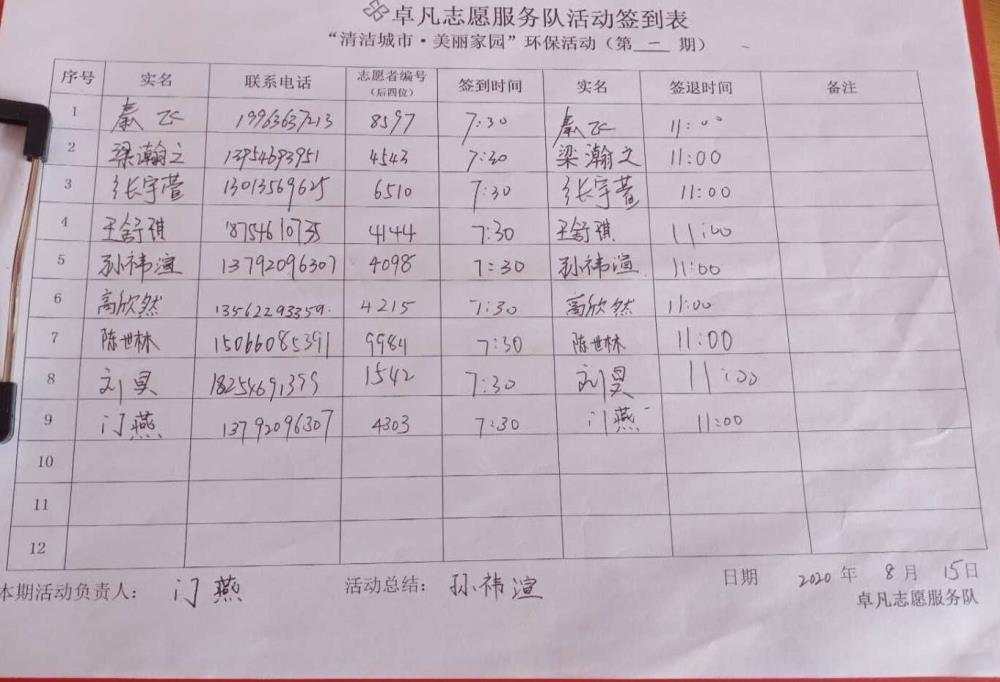 卓凡志愿服务队活动签到表
“清洁城市·美丽家园”环保活动（第 一 期）
序号 实名 联系电话 志愿者编号（后四位） 签到时间 实名 签退时间 备注
1 秦飞 19963637213 8597 7:30 秦飞 11:00
2 梁瀚之 13954693951 4543 7:30 梁瀚之 11:00
3 张宇萱 13013569625 6510 7:30 张宇萱 11:00
4 王舒琪 18754610735 4144 7:30 王舒琪 11:00
5 孙祎渲 13792096307 4098 7:30 孙祎渲 11:00
6 高欣然 13562293359 4215 7:30 高欣然 11:00
7 陈世林 15066085391 9984 7:30 陈世林 11:00
8 刘昊 18254691399 1542 7:30 刘昊 11:00
9 门燕 13792096307 4303 7:30 门燕 11:00
10
11
12
本期活动负责人： 门燕 活动总结： 孙祎渲 日期 2020 年 8 月 15日
卓凡志愿服务队